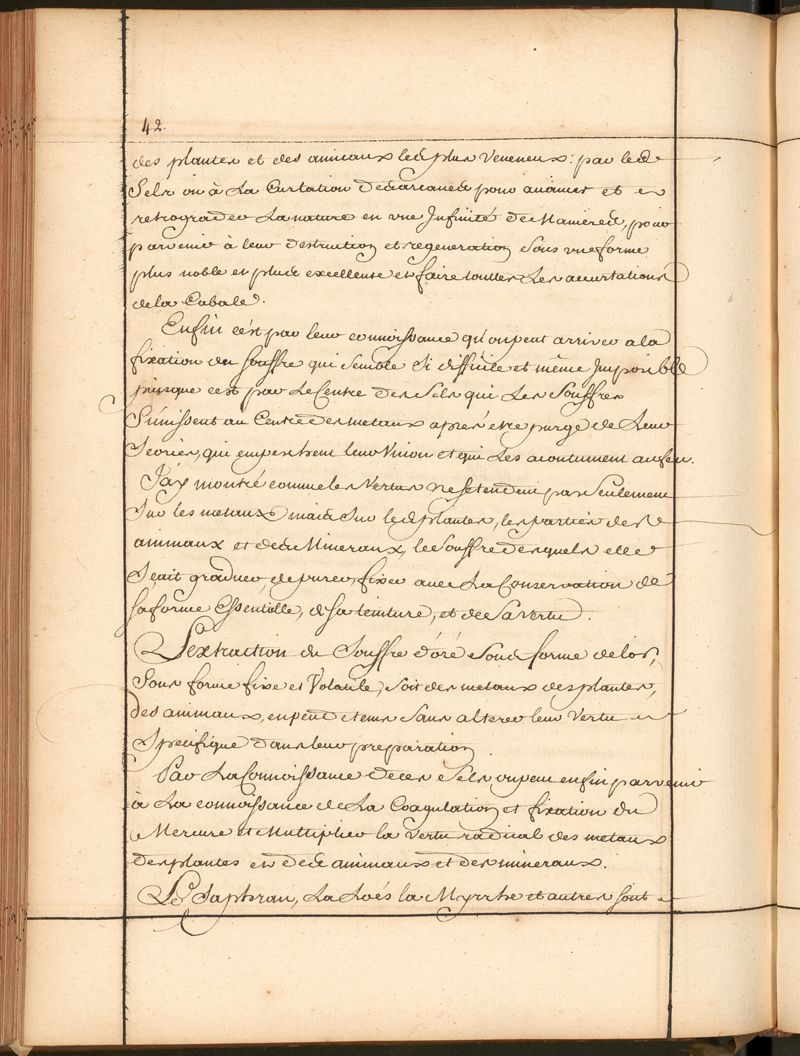 42.
des plantes et des animaux les plus veneneux: par les
Sels on à La Curtation des arcanes pour animer et
retrograder La nature en une Infinité de Manieres, pour
parvenir à leur destruction et regeneration Sous une forme
plus noble et plus excellente et faire touttes Les accurtations
de la Cabale.
Enfin c'est par leur connoissance qu'on peut arriver a la
fixation du souffre qui Semble Si difficile et même Impossible
puisque c'est par Le Centre des Sels qui Les Souffres
S'unissent au Centre des metaux aprés etre purgé de Leur
Scories, qui empeschent leur Union et qui Les acoutument au feu.
J'ay montré comme les Vertus ne s'etendent pas Seulement
Sur les metaux mais Sur les plantes, les parties des
animaux et des Mineraux, le Souffre desquels elle
Sçait graduer, depurer, fixer avec La Conservation de
sa forme Essentielle, de sa teinture, et de Sa Vertu.
L'extraction du Souffre doré Sous forme de l'or,
Sous forme fixe et Volatile, soit des metaux des plantes,
des animaux, en peut etre Sans alterer leur Vertu
Specifique dans leur preparation
Par La Connoissance de ces Sels on peut enfin parvenir
à La connoissance de La Coagulation et fixation du
Mercure et Multiplier la Vertu radical des metaux
des plantes et des animaux et des mineraux.
Le Saphran, La Loés la Myrrhe et autres sont